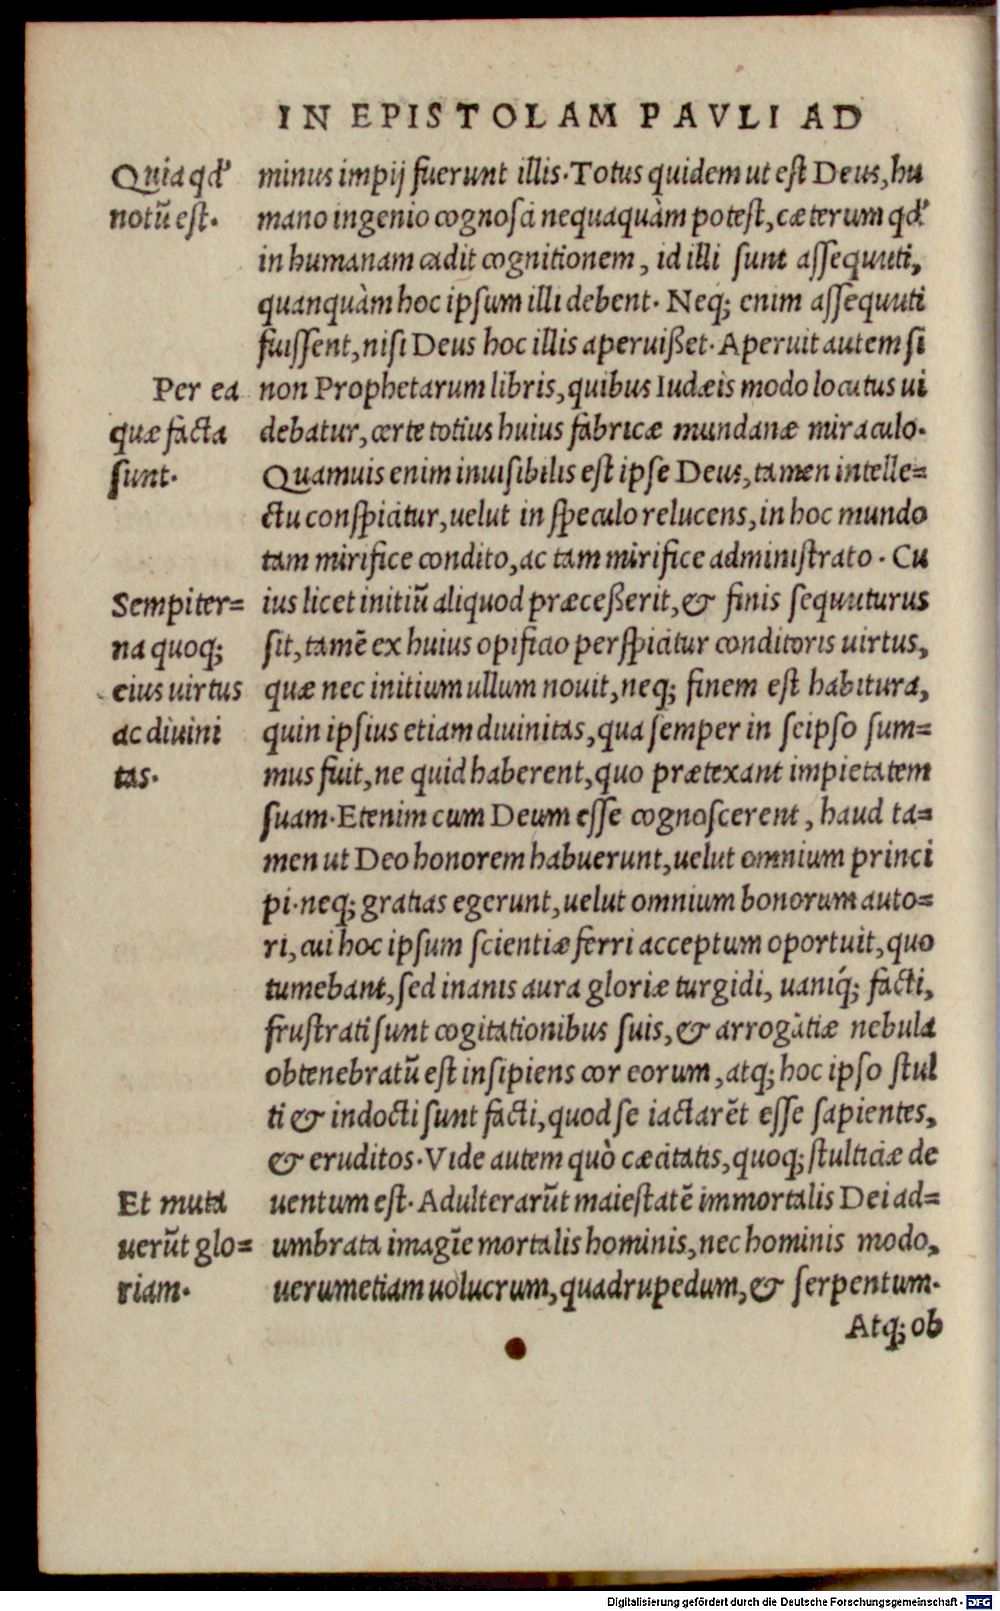 IN EPISTOLAM PAVLI AD
Quia qđ
notũ est.
minus impij fuerunt illis. Totus quidem ut est Deus, hu
mano ingenio cognosci nequaquàm potest, cæterum qđ
in humanam cadit cognitionem, id illi sunt assequuti,
quanquàm hoc ipsum illi debent. Neq; enim assequuti
fuissent, nisi Deus hoc illis aperuißet. Aperuit autem si
Per ea
quæ facta
sunt.
non Prophetarum libris, quibus Iudæis modo locutus ui
debatur, certe totius huius fabricæ mundanæ miraculo.
Quamuis enim inuisibilis est ipse Deus, tamen intelle=
ctu conspicitur, uelut in speculo relucens, in hoc mundo
tam mirifice condito, ac tam mirifice administrato. Cu
Sempiter=
na quoq;
eius uirtus
ac diuini
tas.
ius licet initiũ aliquod præceßerit, & finis sequuturus
sit, tamẽ ex huius opificio perspicitur conditoris uirtus,
quæ nec initium ullum nouit, neq; finem est habitura,
quin ipsius etiam diuinitas, qua semper in seipso sum=
mus fuit, ne quid haberent, quo prætexant impietatem
suam. Etenim cum Deum esse cognoscerent, haud ta=
men ut Deo honorem habuerunt, uelut omnium princi
pi. neq; gratias egerunt, uelut omnium bonorum auto=
ri, cui hoc ipsum scientiæ ferri acceptum oportuit, quo
tumebant, sed inanis aura gloriæ turgidi, uaniq́; facti,
frustrati sunt cogitationibus suis, & arrogãtiæ nebula
obtenebratũ est insipiens cor eorum, atq; hoc ipso stul
ti & indocti sunt facti, quod se iactarẽt esse sapientes,
& eruditos. Vide autem quò cæcitatis, quoq; stulticiæ de
Et muta
uerũt glo=
riam.
uentum est. Adulterarũt maiestatẽ immortalis Dei ad=
umbrata imagĩe mortalis hominis, nec hominis modo,
uerumetiam uolucrum, quadrupedum, & serpentum.
Atq; ob
Digitalisierung gefördert durch die Deutsche Forschungsgemeinschaft - DFG